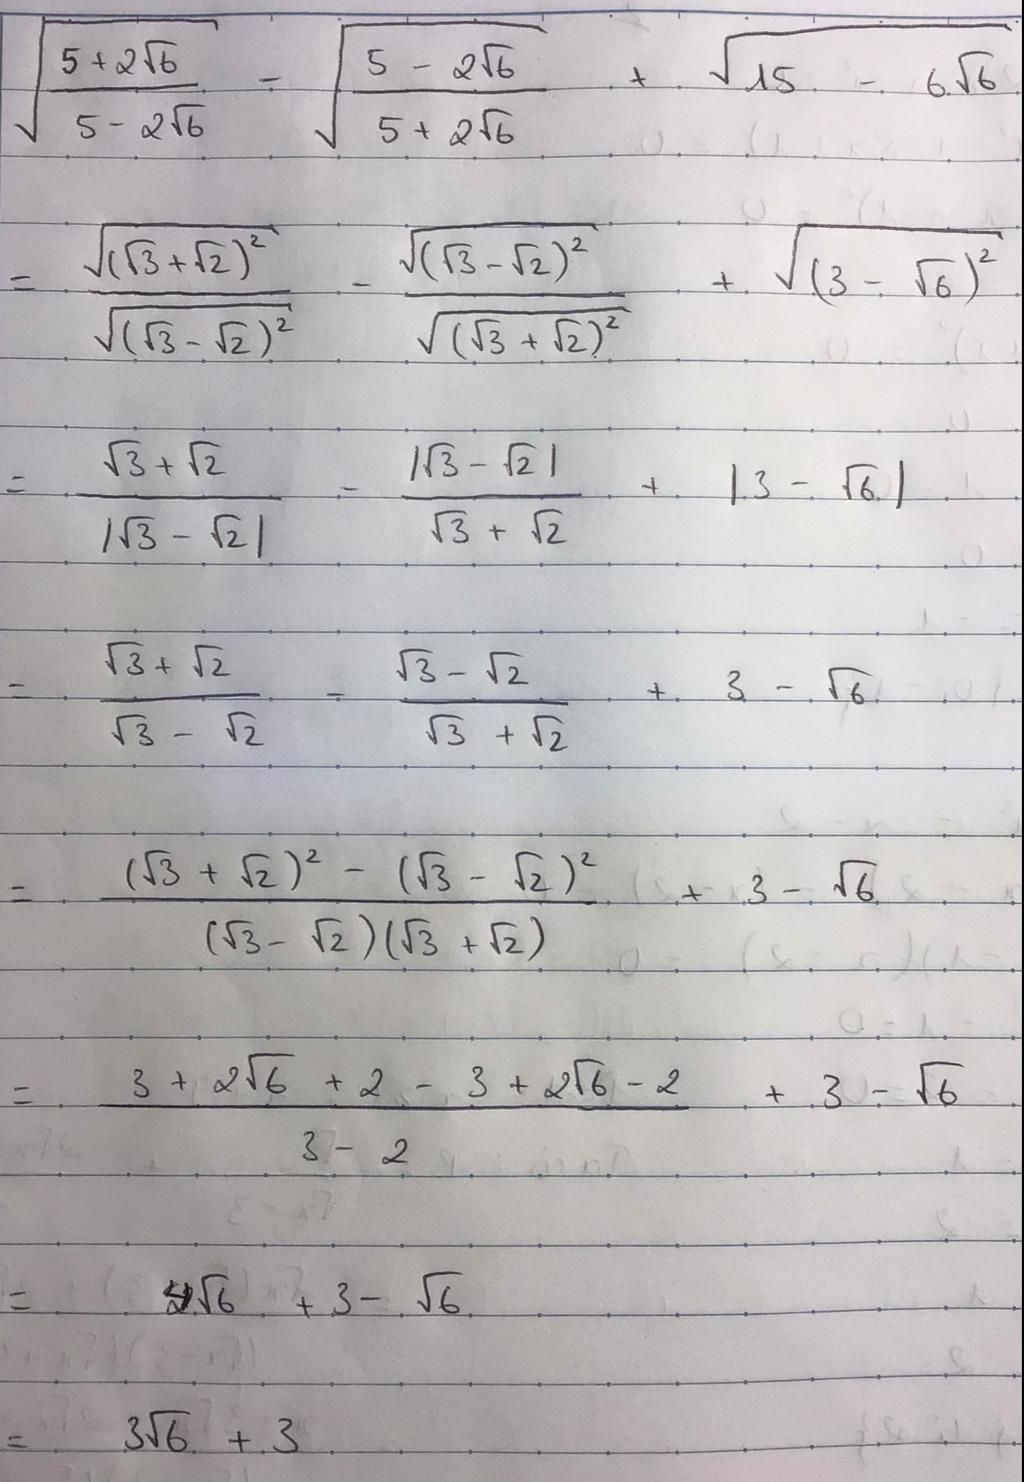 √((5 + 2√6)/(5 - 2√6)) - √((5 - 2√6)/(5 + 2√6)) + √(15 - 6√6)
= √((√3 + √2)²)/√((√3 - √2)²) - √((√3 - √2)²)/√((√3 + √2)²) + √((3 - √6)²)
= (√3 + √2)/|√3 - √2| - |√3 - √2|/(√3 + √2) + |3 - √6|
= (√3 + √2)/(√3 - √2) - (√3 - √2)/(√3 + √2) + 3 - √6
= ((√3 + √2)² - (√3 - √2)²)/((√3 - √2)(√3 + √2)) + 3 - √6
= (3 + 2√6 + 2 - 3 + 2√6 - 2)/(3 - 2) + 3 - √6
= 4√6 + 3 - √6
= 3√6 + 3